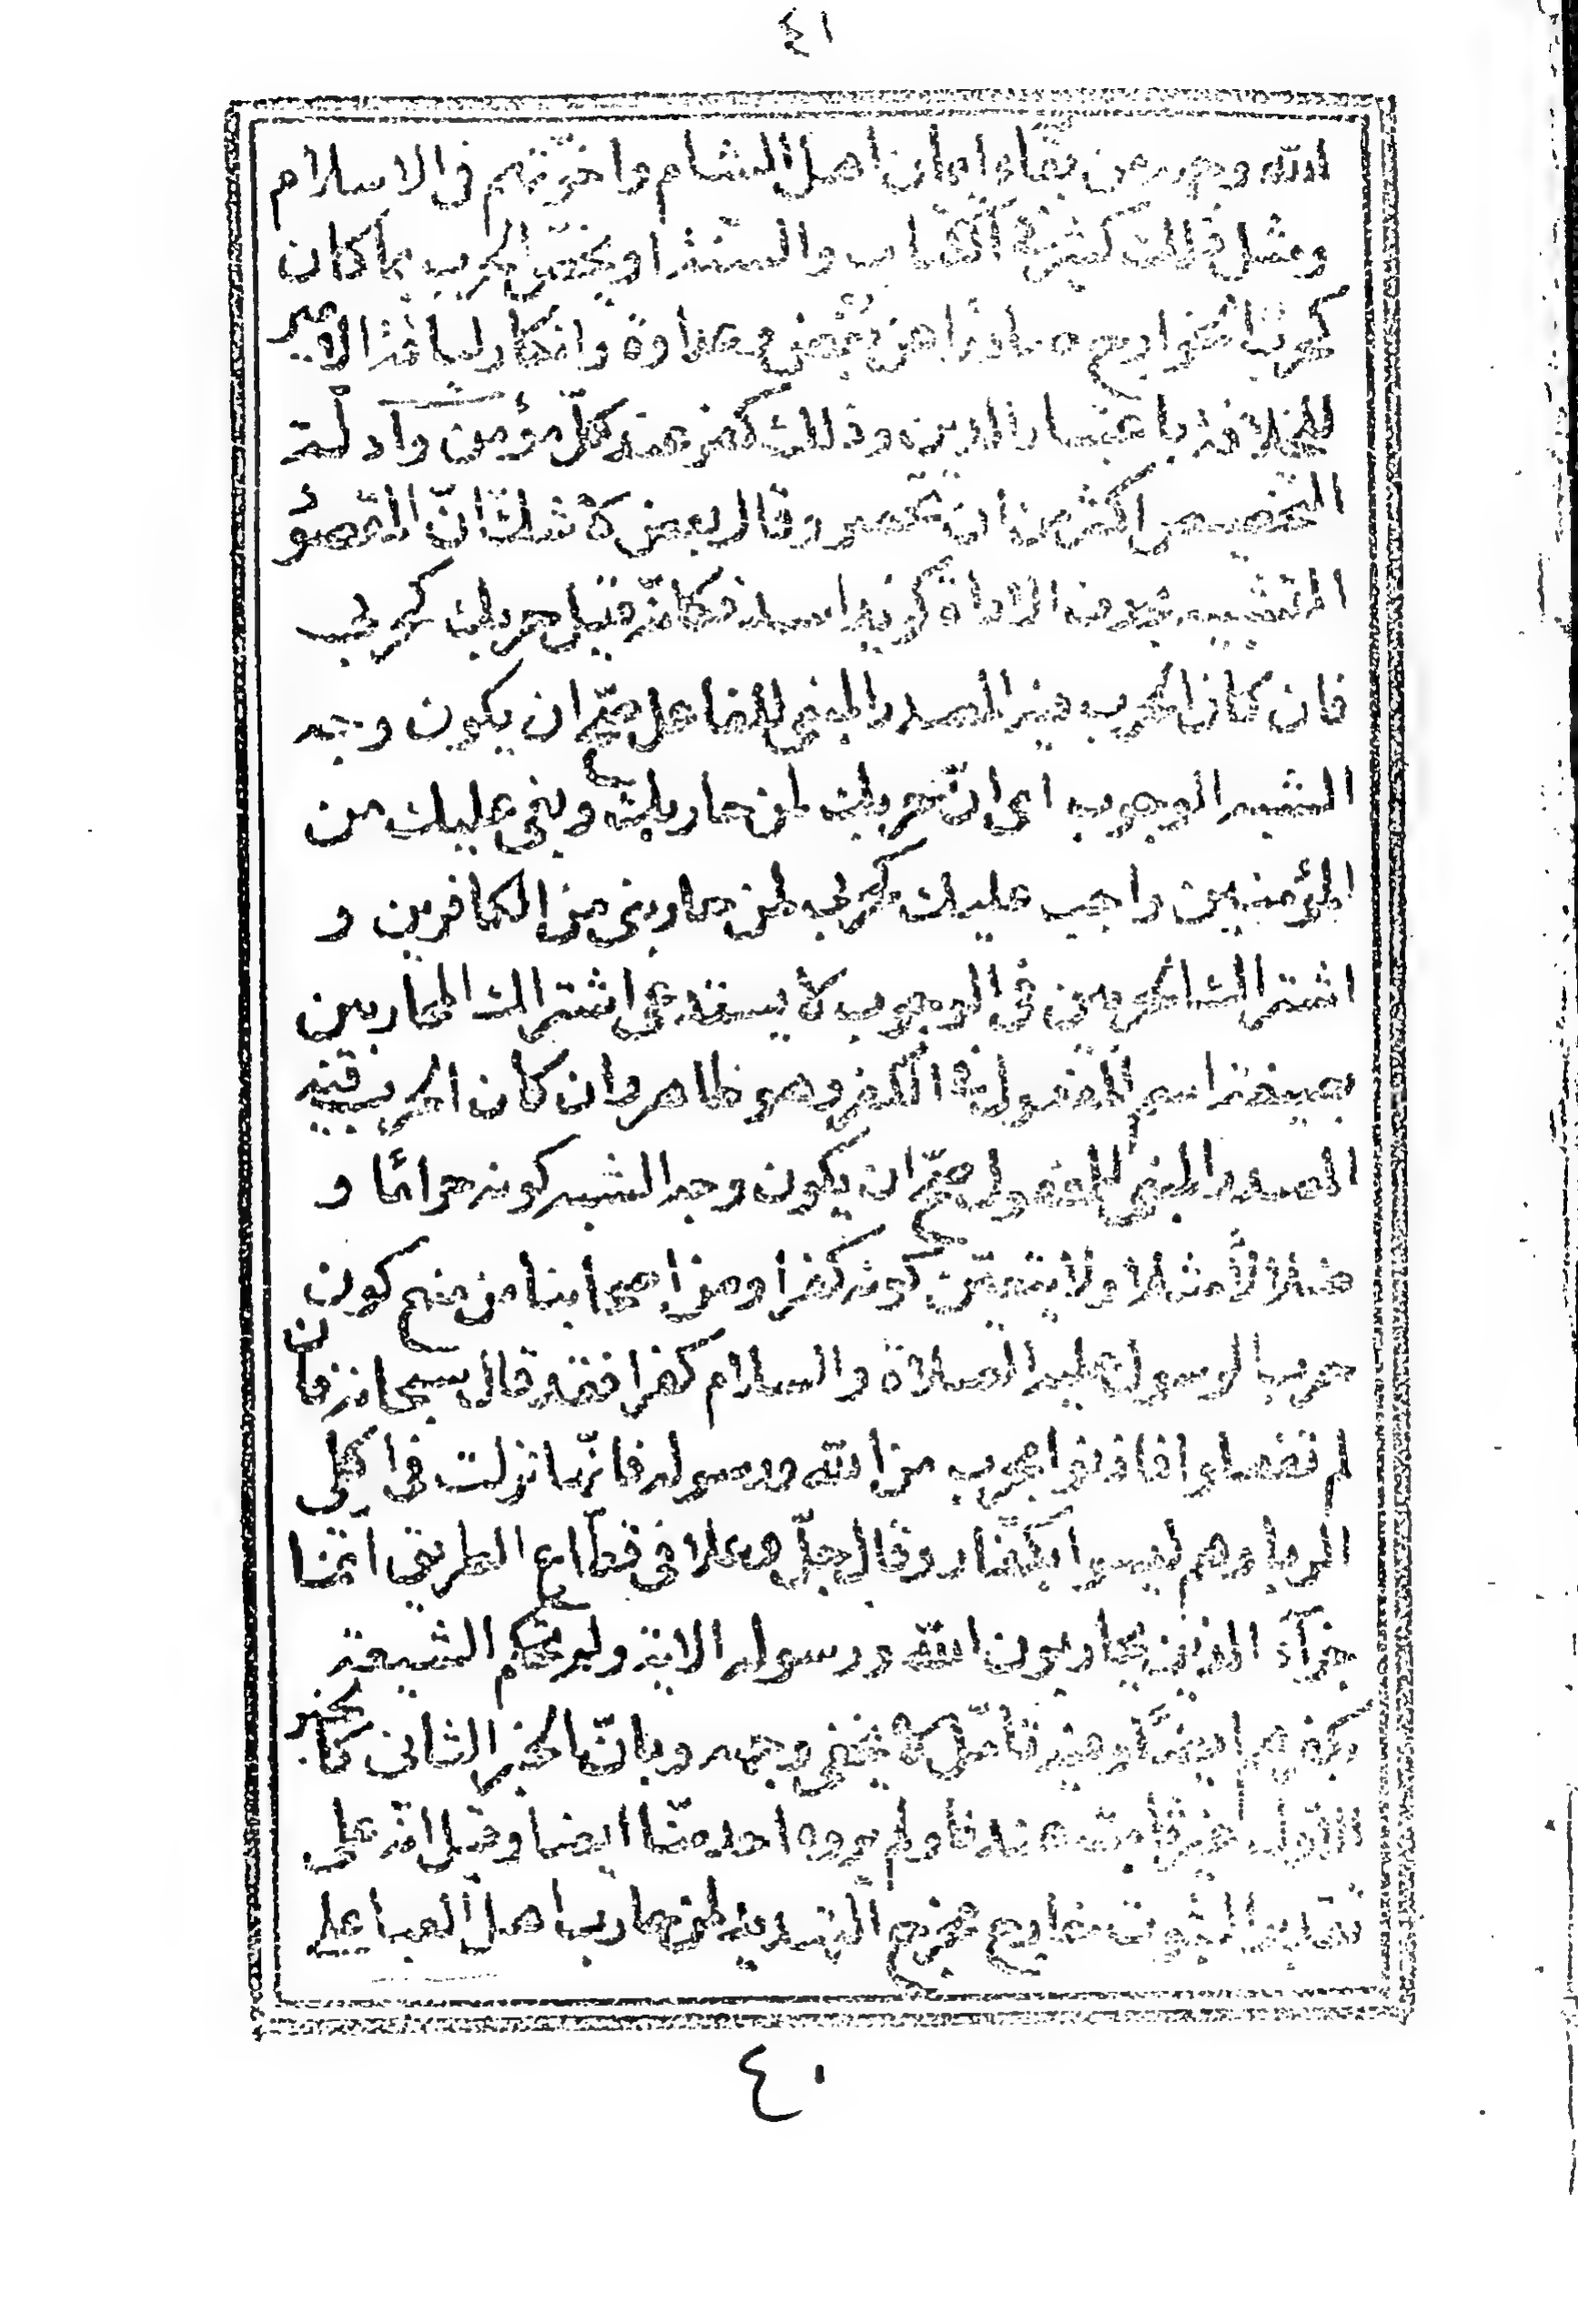 ٤١
الله وجهه من بقاء ايمان اهل الشام واخوّتهم في الاسلام
ومثل ذلك كثير في الكتاب والسنة او يخصّ الحرب بما كان
كحرب الخوارج صادرا عن بغض وعداوة وانكار لياقة الامير
للخلافة باعتبار الدين وذلك كفر عند كلّ مؤمن وادلة
التخصيص اكثر من ان تحصر وقال بعض لا شك انّ المقصود
التشبيه بحذف الاداة كزيد اسد فكانه قيل حربك كحربي
فان كان الحرب فيه المصدر المبني للفاعل صحّ ان يكون وجه
الشبه الوجوب اي انّ حربك لمن حاربك وبغى عليك من
المؤمنين واجب عليك كحربي لمن حاربني من الكافرين و
اشتراك الحربين في الوجوب لا يستدعي اشتراك المحاربين
بصيغة اسم المفعول في الكفر وهو ظاهر وان كان الحرب فيه
المصدر المبني للمفعول صحّ ان يكون وجه الشبه كونه حراما و
ضلالا مثلا ولا يتعين كونه كفرا ومن اصحابنا من منع كون
حرب الرسول عليه الصلاة والسلام كفرا فقد قال سبحانه فان
لم تفعلوا فاذنوا بحرب من الله ورسوله فانّها نزلت في اكلي
الربا وهم ليسوا بكفار وقال جلّ وعلا في قطّاع الطريق انّما
جزآء الذين يحاربون الله ورسوله الاية ولم تحكم الشيعة
بكفرهم ايضا وفيه تأمّل لا يخفى وجهه وبانّ الخبر الثاني كالخبر
الاول غير ثابت عندنا ولم يروه احد منّا ايضا وقيل انّه على
تقدير الثبوت خارج مخرج التهديد لمن حارب اهل العبا عليهم
٤٠